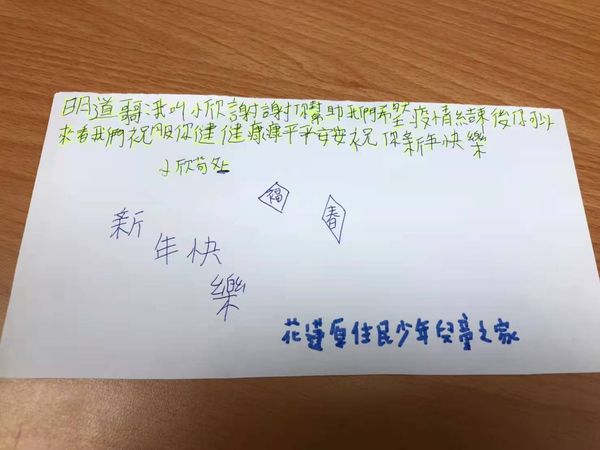 明道哥我叫小欣謝謝你幫助我們希望疫情結束後你可以
來看我們祝服你健健康康平平安安祝你新年快樂
小欣敬上
福
春
新
年快
樂
花蓮原住民少年兒童之家